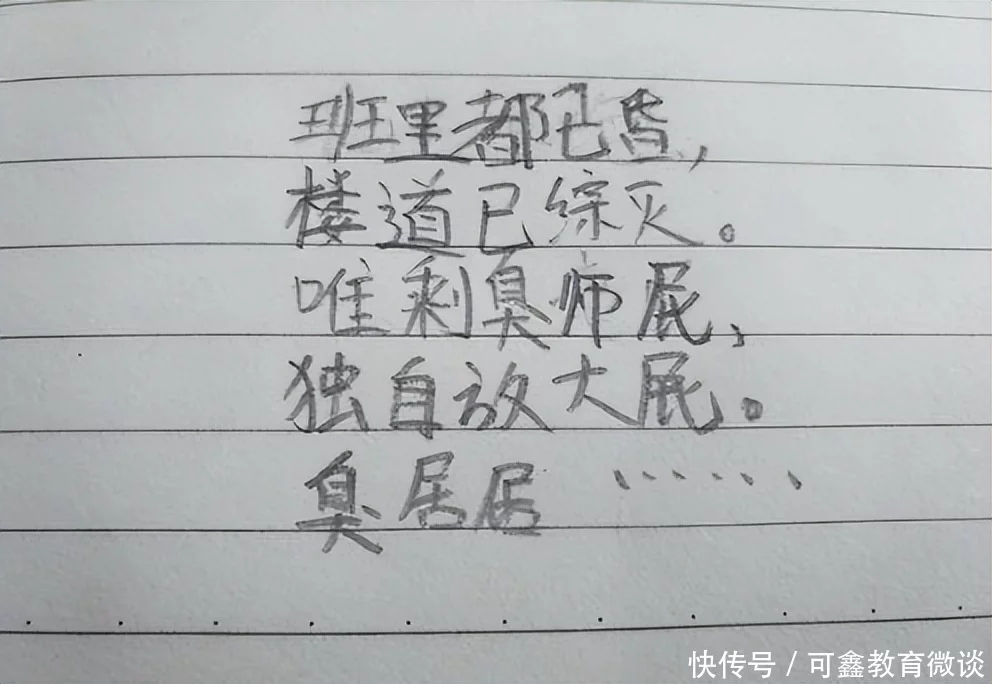 班里都已昏，
楼道已综灭。
唯剩臭师屁，
独自放大屁。
臭居居……
快传号/可鑫教育微谈